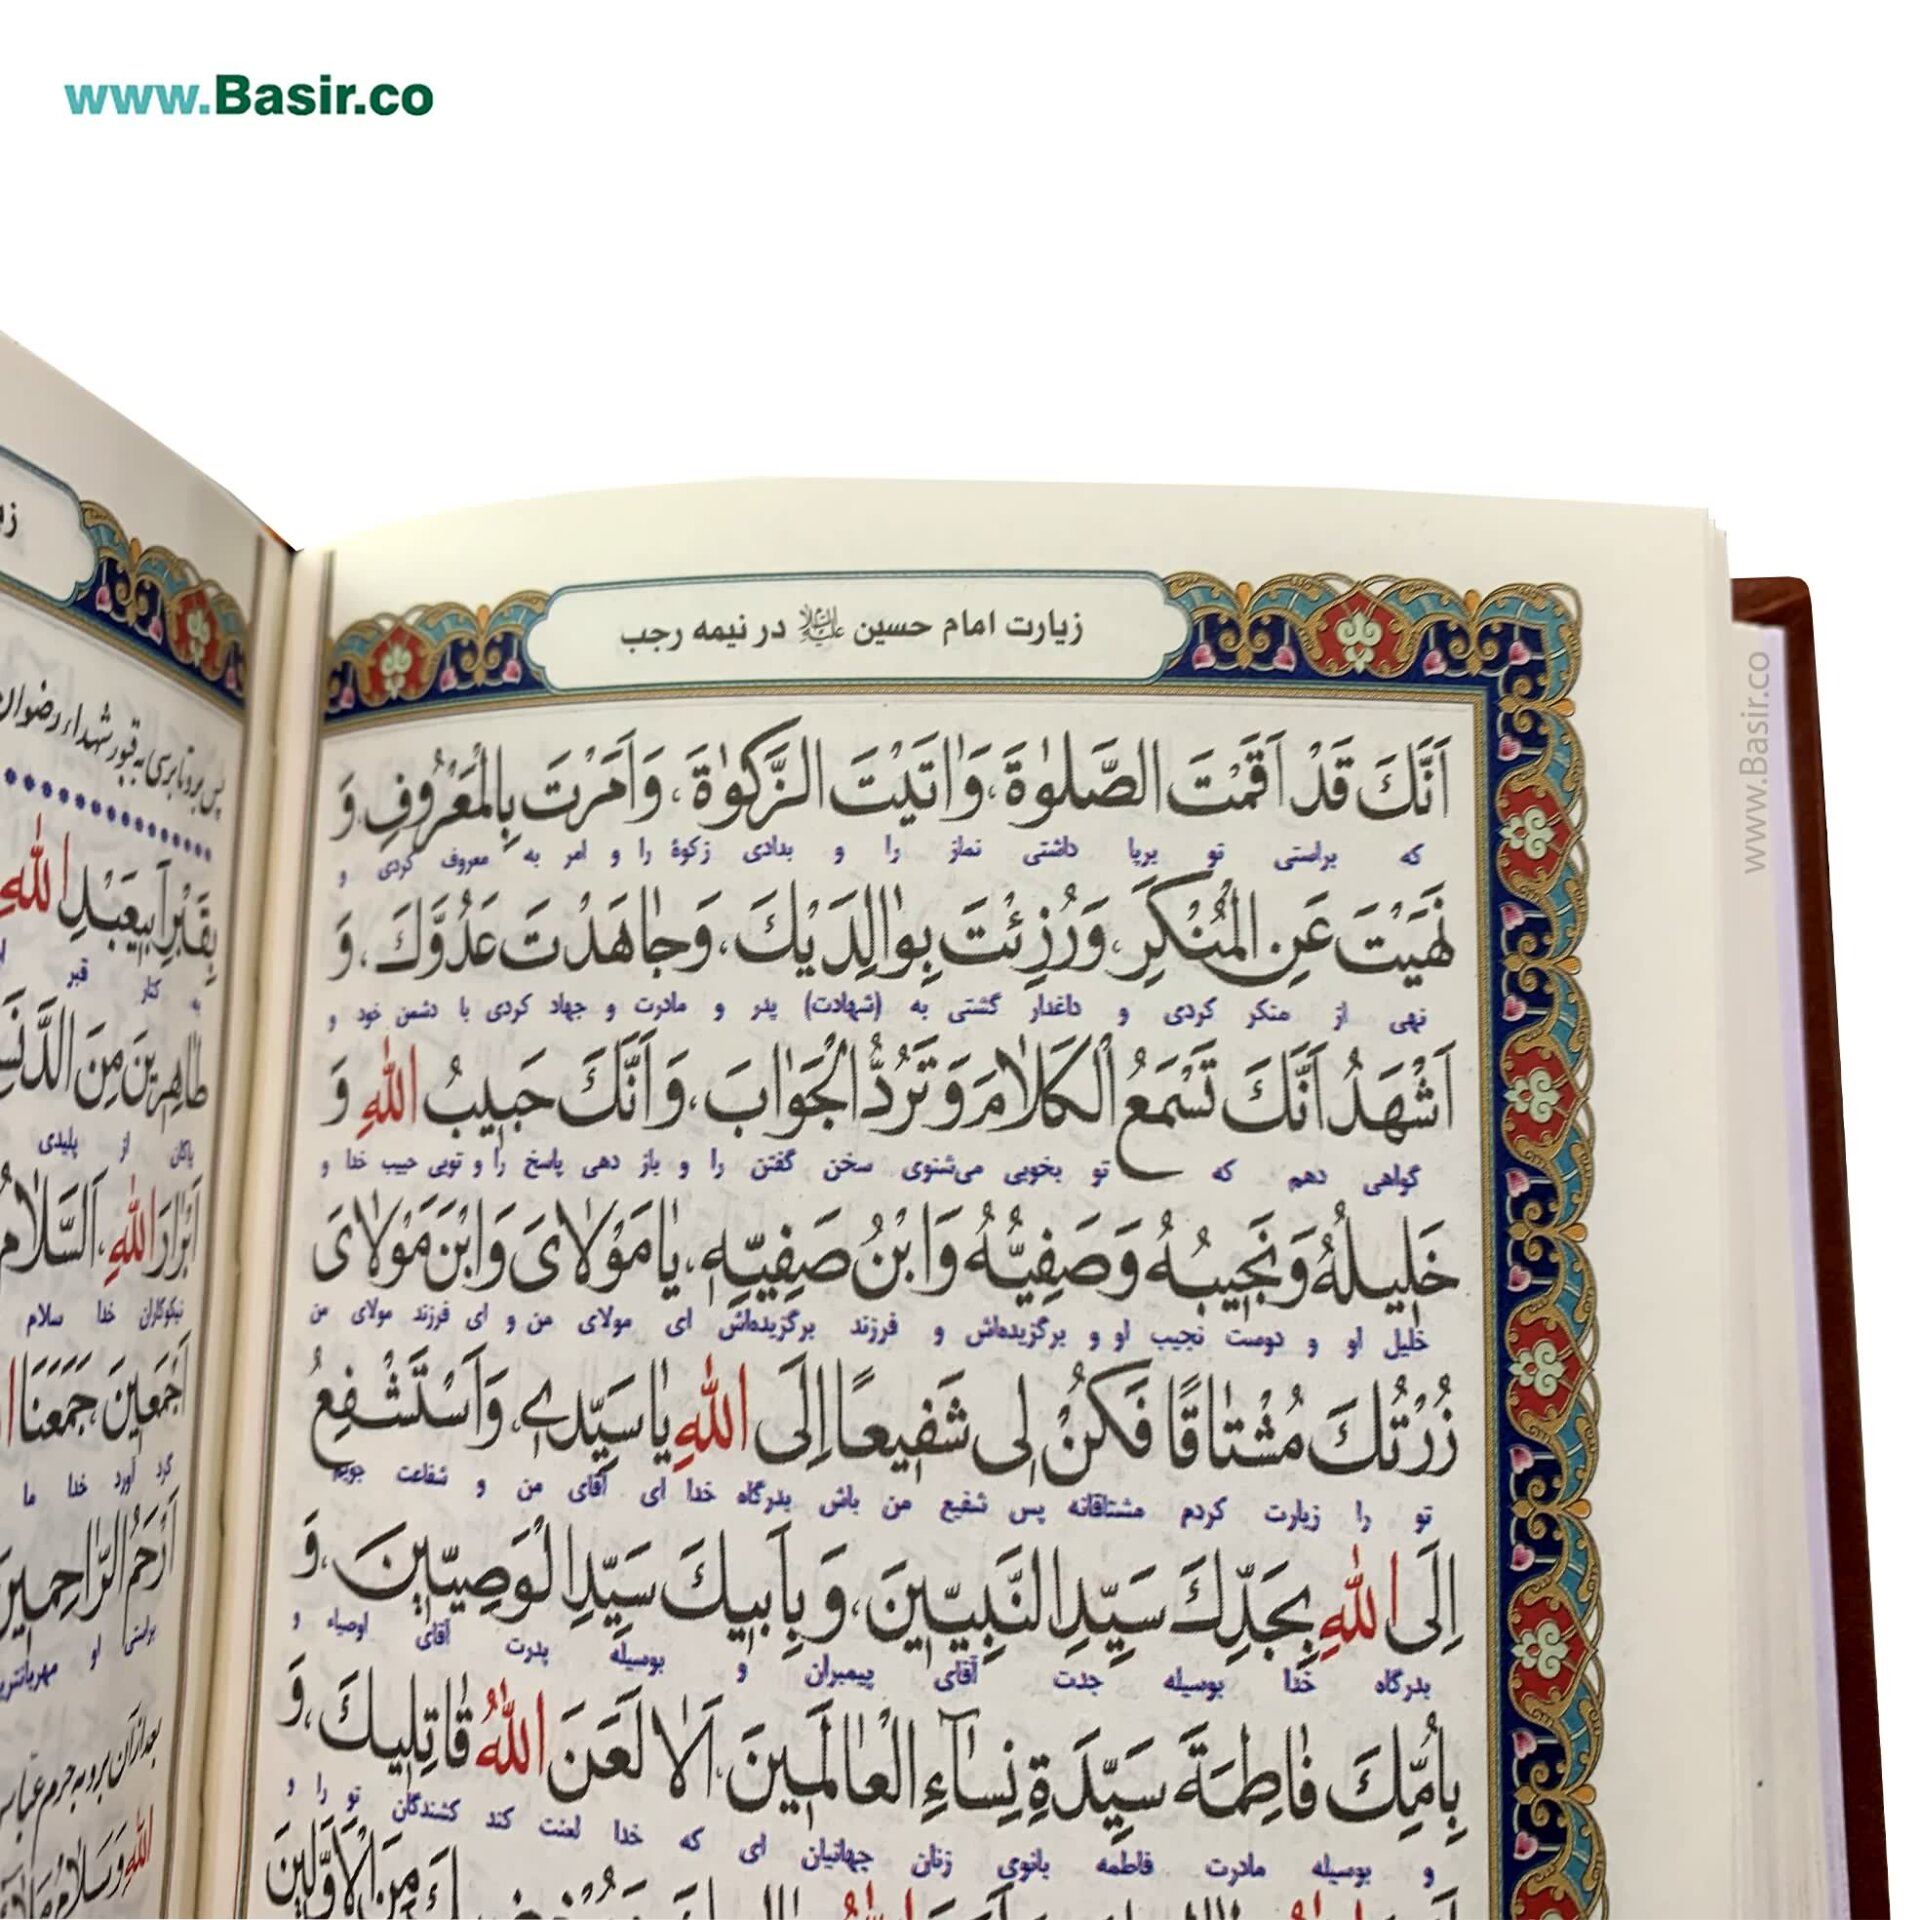 www.Basir.co
زیارت امام حسین علیه‌السلام در نیمه رجب
اَنَّكَ قَدْ اَقَمْتَ الصَّلوٰةَ، وَاٰتَيْتَ الزَّكوٰةَ، وَاَمَرْتَ بِالْمَعْرُوفِ وَ
که براستی تو برپا داشتی نماز را و بدادی زکوة را و امر به معروف کردی و
نَهَيْتَ عَنِ الْمُنْكَرِ، وَرُزِئْتَ بِوٰالِدَيْكَ، وَجٰاهَدْتَ عَدُوَّكَ، وَ
نهی از منکر کردی و داغدار گشتی به (شهادت) پدر و مادرت و جهاد کردی با دشمن خود و
اَشْهَدُ اَنَّكَ تَسْمَعُ الْكَلٰامَ وَ تَرُدُّ الْجَوٰابَ، وَ اَنَّكَ حَبيبُ اللهِ وَ
گواهی دهم که تو بخوبی می‌شنوی سخن گفتن را و باز دهی پاسخ را و تویی حبیب خدا و
خَليلُهُ وَ نَجيبُهُ وَ صَفِيُّهُ وَ ابْنُ صَفِيِّهِ، يٰا مَوْلٰاىَ وَ ابْنَ مَوْلٰاىَ
خلیل او و دوست نجیب او و برگزیده‌اش و فرزند برگزیده‌اش ای مولای من و ای فرزند مولای من
زُرْتُكَ مُشْتٰاقًا فَكُنْ لى شَفيعًا اِلَى اللهِ يٰا سَيِّدي، وَ اَسْتَشْفِعُ
تو را زیارت کردم مشتاقانه پس شفیع من باش بدرگاه خدا ای آقای من و شفاعت جویم
اِلَى اللهِ بِجَدِّكَ سَيِّدِ النَّبِيّينَ، وَ بِاَبيكَ سَيِّدِ الْوَصِيّينَ، وَ
بدرگاه خدا بوسیله جدت آقای پیمبران و بوسیله پدرت آقای اوصیاء و
بِاُمِّكَ فٰاطِمَةَ سَيِّدَةِ نِسٰاۤءِ الْعٰالَمينَ، اَلٰا لَعَنَ اللهُ قٰاتِليكَ، وَ
و بوسیله مادرت فاطمه بانوی زنان جهانیان ای که خدا لعنت کند کشندگان تو را و
مِنَ الْاَوَّلينَ
پس برو تا برسی به قبور شهداء رضوان
بِقَبْرِ اَبيعَبْدِ اللهِ
به کنار قبر
طٰاهِرينَ مِنَ الدَّنَسِ
پاکان از پلیدی
اَبْرٰارَ اللهِ، اَلسَّلٰامُ
نیکوکاران خدا سلام
اَجْمَعينَ، جَمَعَنَا
گرد آورد خدا ما
اَرْحَمُ الرّٰاحِمينَ
براستی او مهربانترین
بعد از آن برو به حرم عباس
اللهِ وَ سَلٰامُ
www.Basir.co